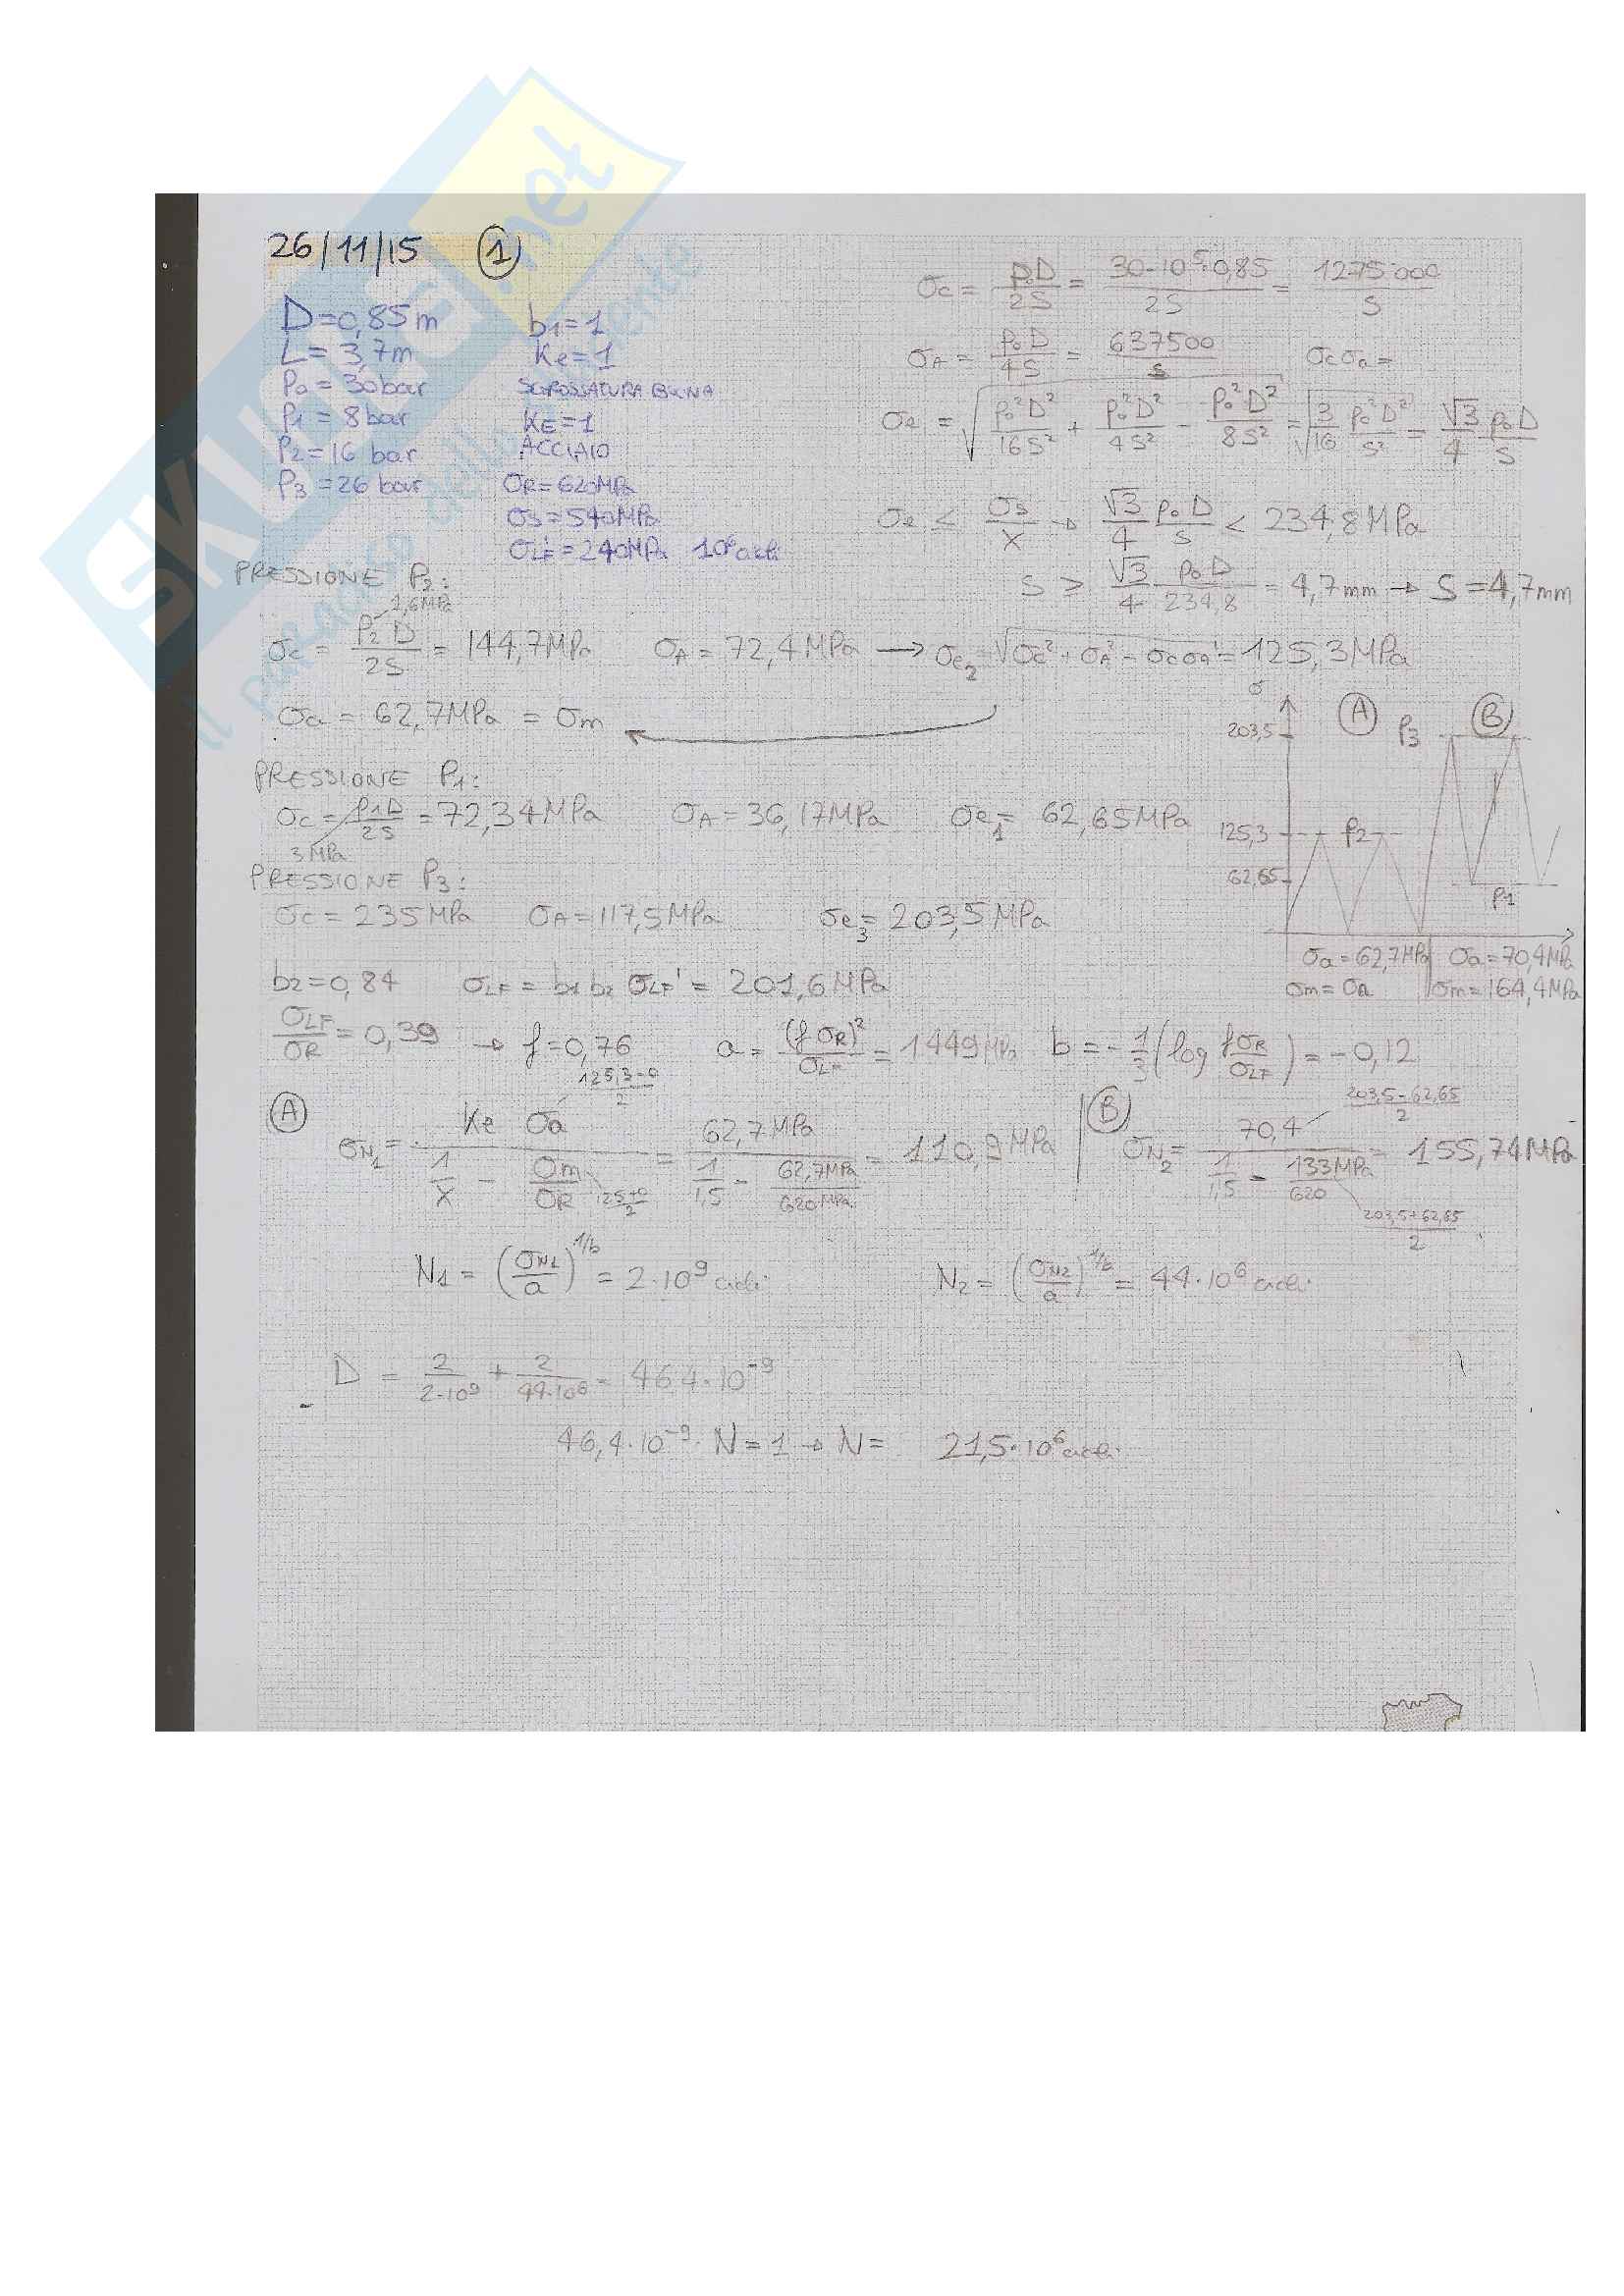 SKUOLA.net
il paradiso dello studente
26/11/15 ①
D=0,85m
L= 3,7m
P0 = 30bar
P1 = 8bar
P2=16 bar
P3 =26 bar
b1=1
Ke=1
KE=1
ACCIAIO
σR=620MPa
σS=540MPa
σLF'=240MPa 10⁶ cicli
σc = P0D/2S = 30·10⁵·0,85/2S = 1275000/S
σA = P0D/4S = 637500/S σcσa=
σe = √(P0²D²/16S² + P0²D²/4S² - P0²D²/8S²) = √(3/16 P0²D²/S²) = √3/4 P0D/S
σe < σS/X → √3/4 P0D/S < 234,8MPa
S ≥ √3/4 P0D/234,8 = 4,7mm → S=4,7mm
PRESSIONE P2:
1,6MPa
σc = P2D/2S = 144,7MPa σA = 72,4MPa → σe2=√(σc²+σA²-σcσa) = 125,3MPa
σa = 62,7MPa = σm
PRESSIONE P1:
σc = P1D/2S = 72,34MPa σA=36,17MPa σe1= 62,65MPa
3MPa
PRESSIONE P3:
σc = 235MPa σA=117,5MPa σe3= 203,5MPa
σ
Ⓐ Ⓑ
203,5 P3
125,3 P2
62,65 P1
σa=62,7MPa σa=70,4MPa
σm=σa σm=164,4MPa
b2=0,84 σLF = b1 b2 σLF' = 201,6MPa
σLF/σR = 0,39 → f=0,76 a = (fσR)²/σLF = 1449MPa b=-1/3(log fσR/σLF) = -0,12
Ⓐ σN1= Ke σa/(1/X - σm/σR) = 62,7MPa/(1/1,5 - 62,7MPa/620MPa) = 110,9MPa
125,3-0/2
125+0/2
Ⓑ σN2= 70,4/(1/1,5 - 133MPa/620) = 155,74MPa
203,5-62,65/2
203,5+62,65/2
N1 = (σN1/a)^1/b = 2·10⁹ cicli N2 = (σN2/a)^1/b = 44·10⁶ cicli
D = 2/2·10⁹ + 2/44·10⁶ = 46,4·10⁻⁹
46,4·10⁻⁹·N=1 → N= 21,5·10⁶ cicli